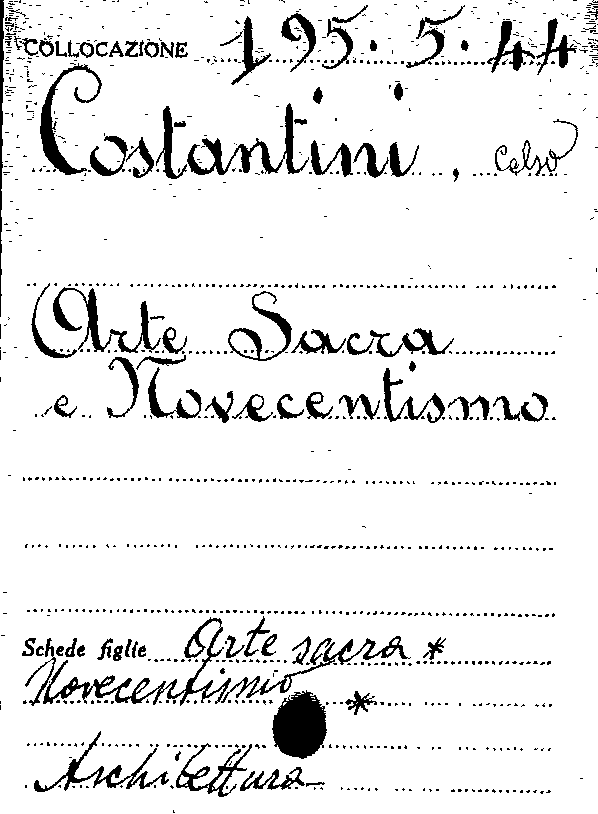 COLLOCAZIONE 195. 5. 44
Costantini, Celso
Arte Sacra
e Novecentismo
Schede figlie Arte sacra *
Novecentismo *
Architettura